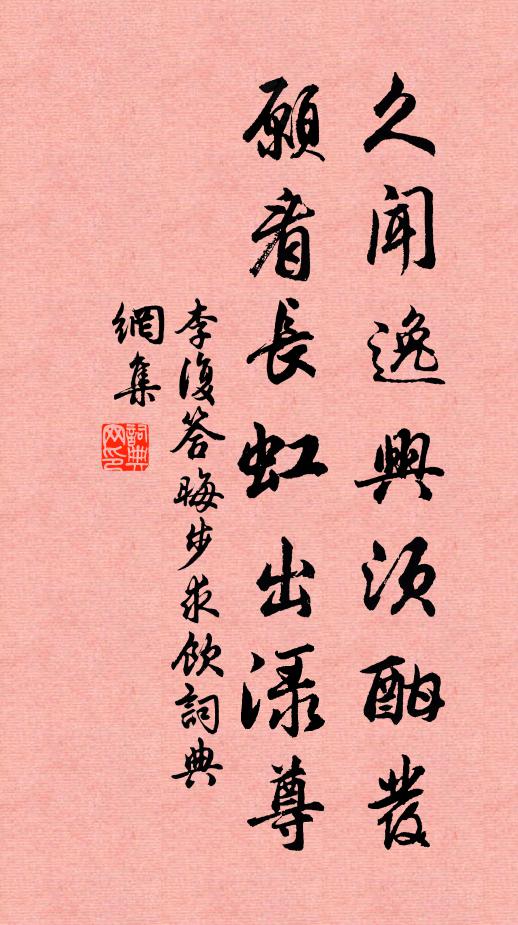 久聞逸興須酣發
願看長虹出淥尊
李復答晦步求飲詞典
網集
詞典
网印